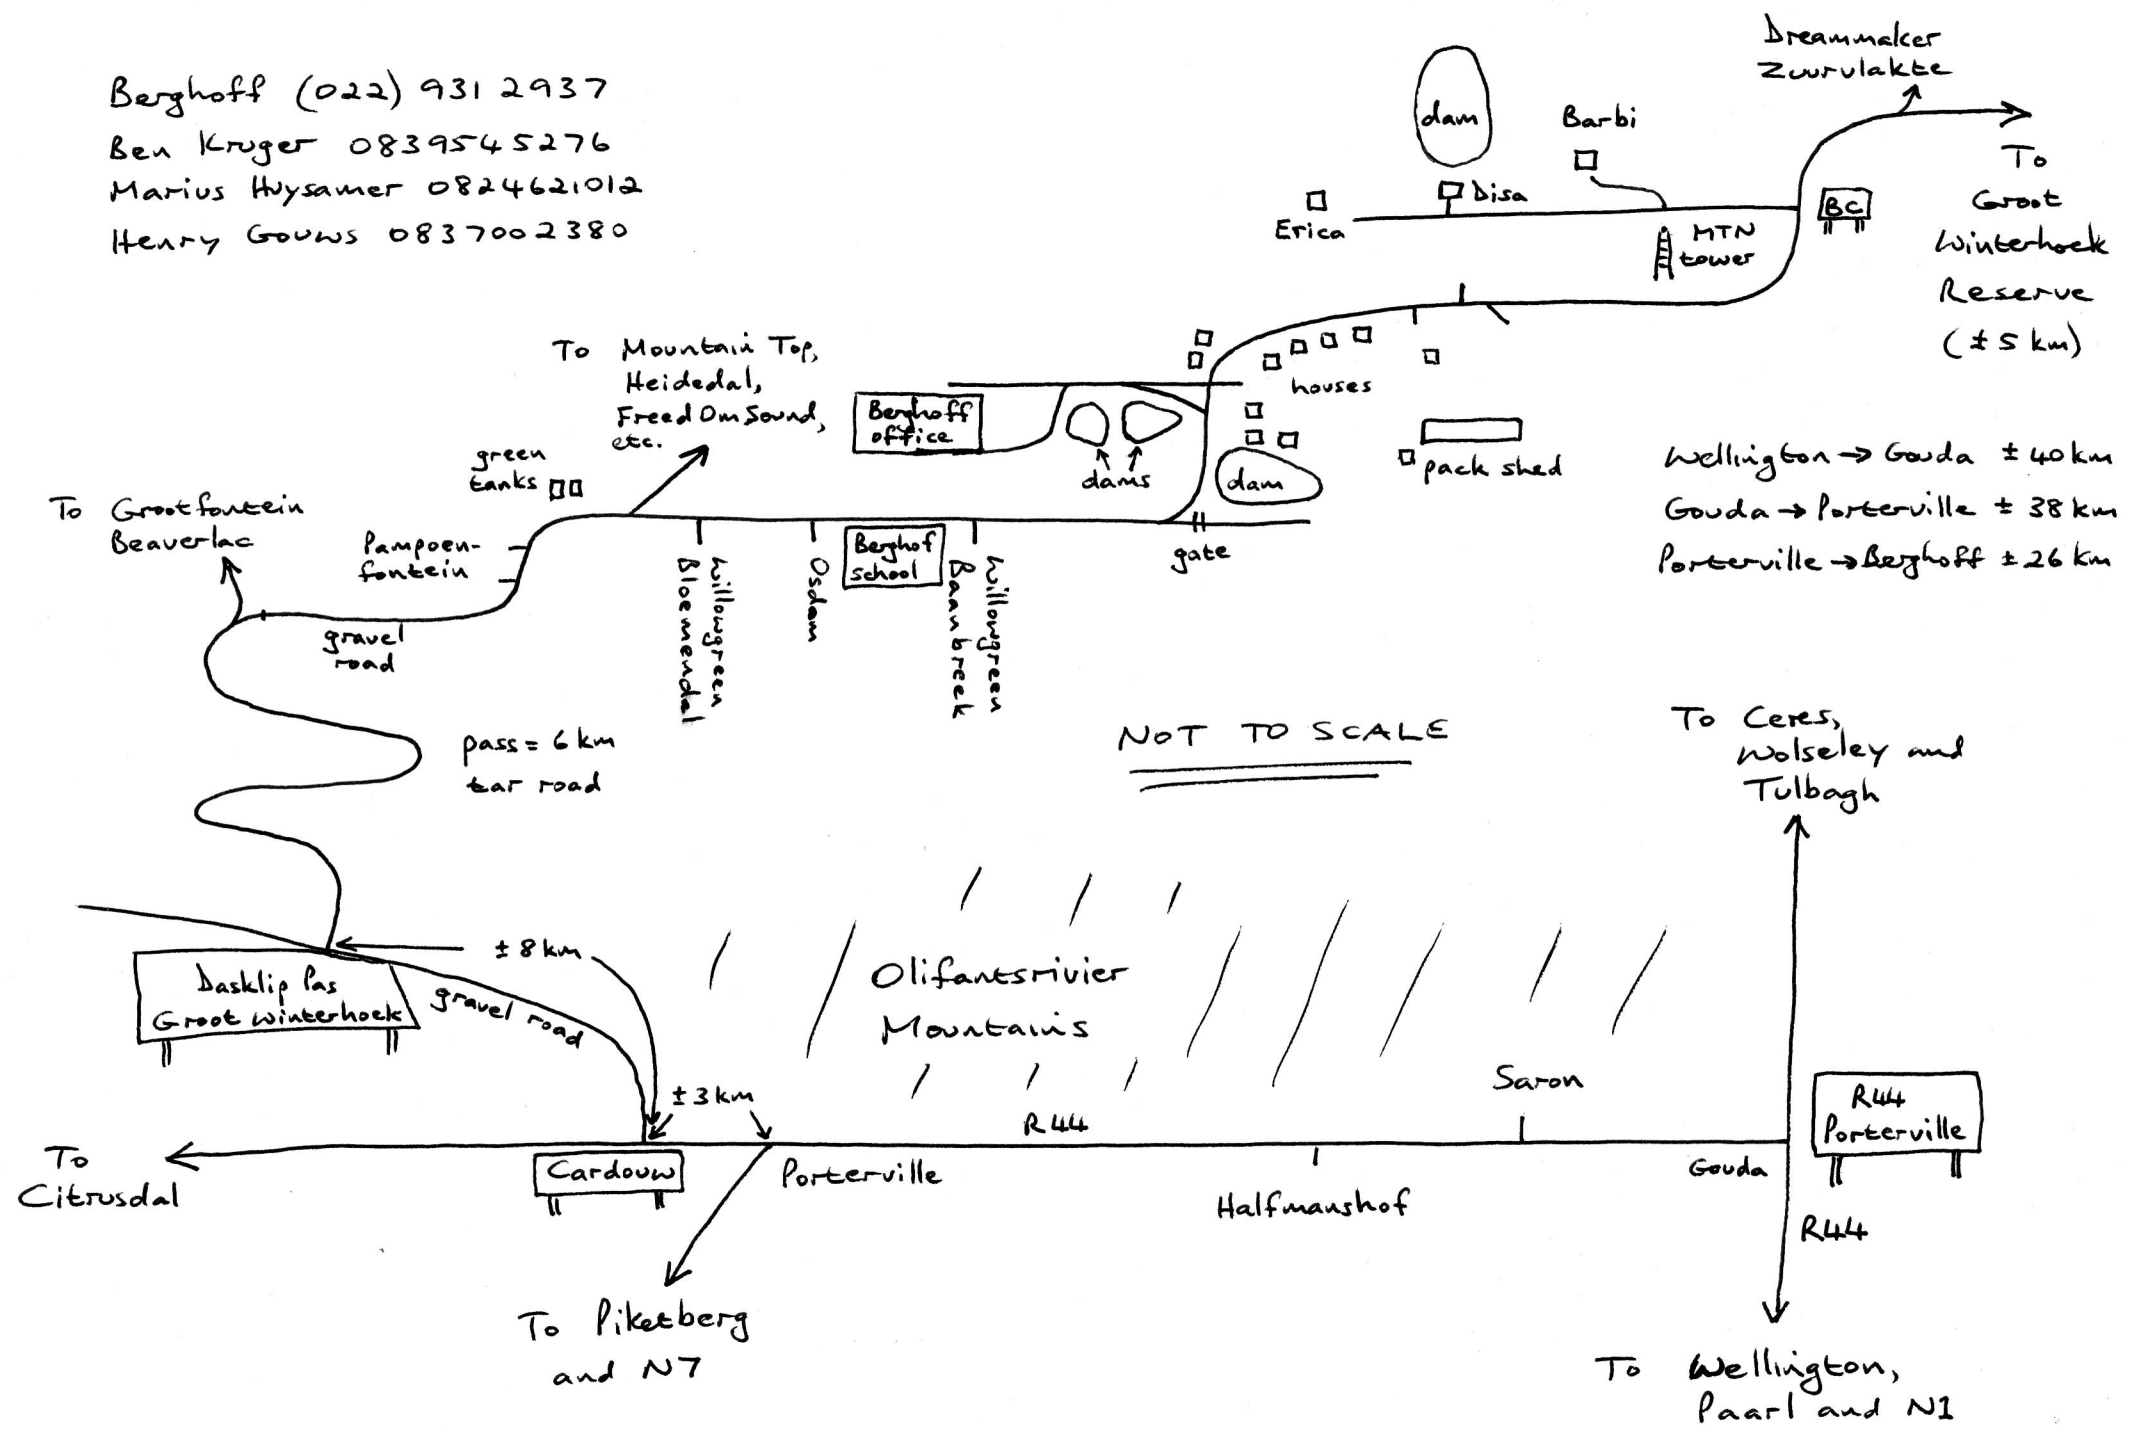 Berghoff (022) 931 2937
Ben Kruger 0839545276
Marius Huysamer 0824621012
Henry Gouws 0837002380
Dreammaker
Zuurvlakte
dam
Barbi
Disa
Erica
MTN
tower
BC
To
Groot
Winterhoek
Reserve
(± 5 km)
To Mountain Top,
Heidedal,
FreedOm Sound,
etc.
Berghoff
office
houses
dams
dam
pack shed
green
tanks
To Grootfontein
Beaverlac
Pampoen-
fontein
gravel
road
Willowgreen
Bloemendal
Osdam
Berghof
School
Willowgreen
Baanbreek
gate
Wellington → Gouda ± 40 km
Gouda → Porterville ± 38 km
Porterville → Berghoff ± 26 km
pass = 6 km
tar road
NOT TO SCALE
To Ceres,
Wolseley and
Tulbagh
± 8 km
Dasklip Pas
Groot Winterhoek
gravel road
Olifantsrivier
Mountains
± 3 km
R44
Saron
R44
Porterville
To
Citrusdal
Cardouw
Porterville
Halfmanshof
Gouda
R44
To Piketberg
and N7
To Wellington,
Paarl and N1